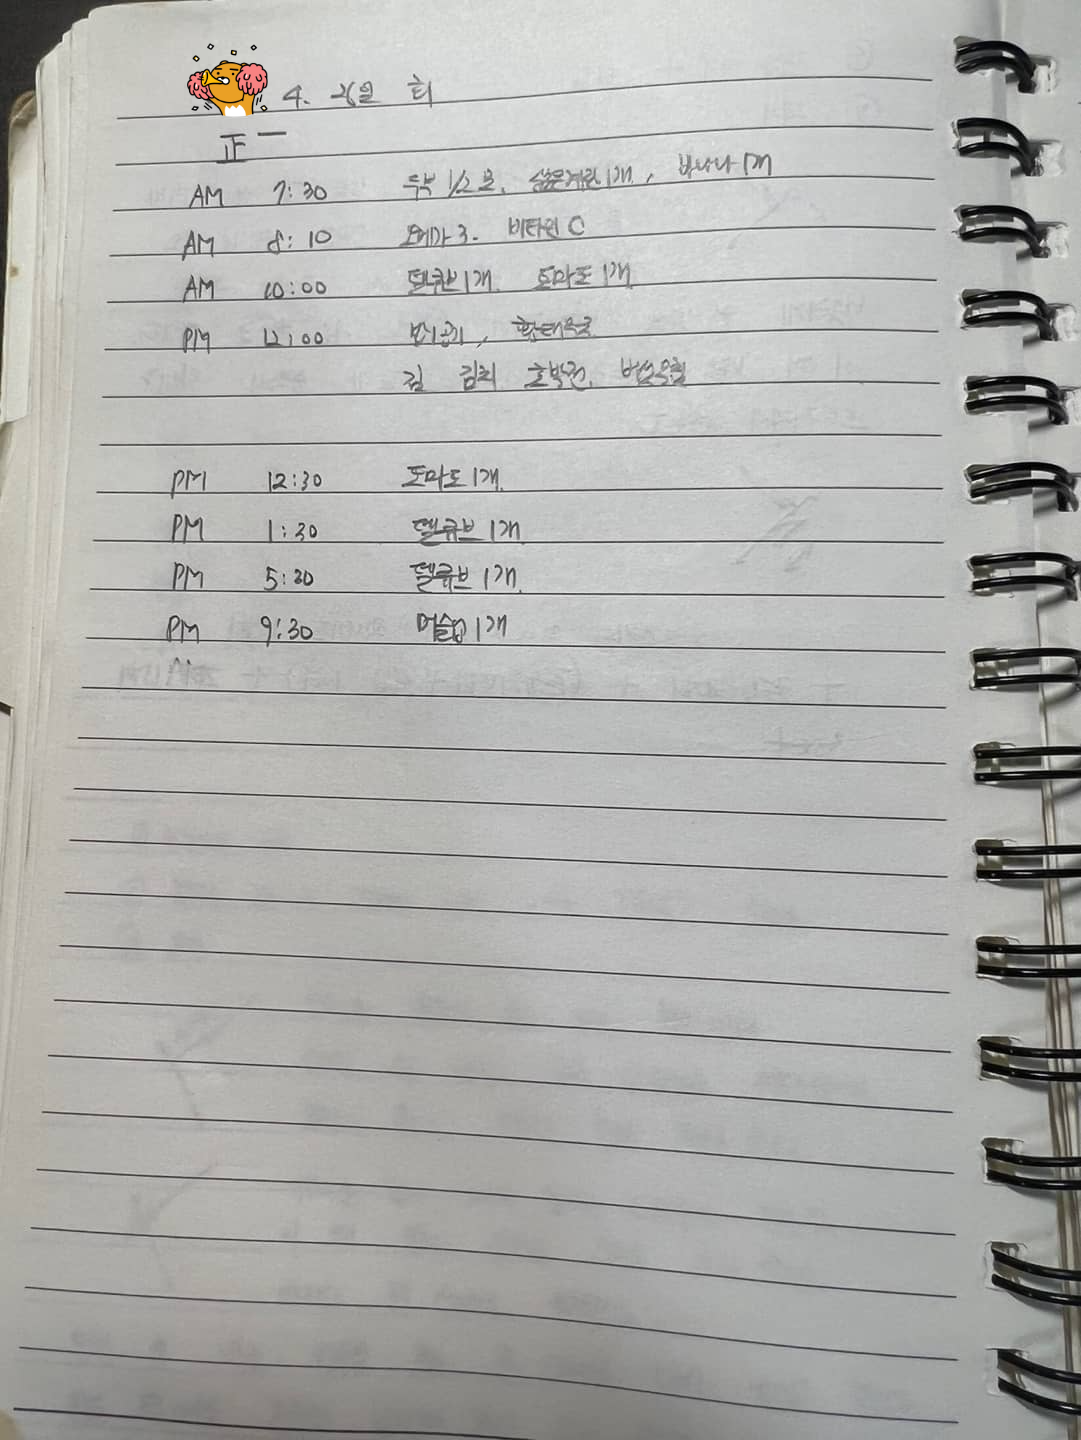 4. 26일 화
正一
AM 7:30 두부 1/2모, 삶은계란 1개, 바나나 1개
AM 8:10 오메가3. 비타민 C
AM 10:00 덴큐브 1개. 토마토 1개
PM 12:00 밥1공기, 황태국
김 김치 호박전. 버섯무침
PM 12:30 토마토 1개.
PM 1:30 덴큐브 1개
PM 5:30 덴큐브 1개.
PM 9:30 머슬업 1개